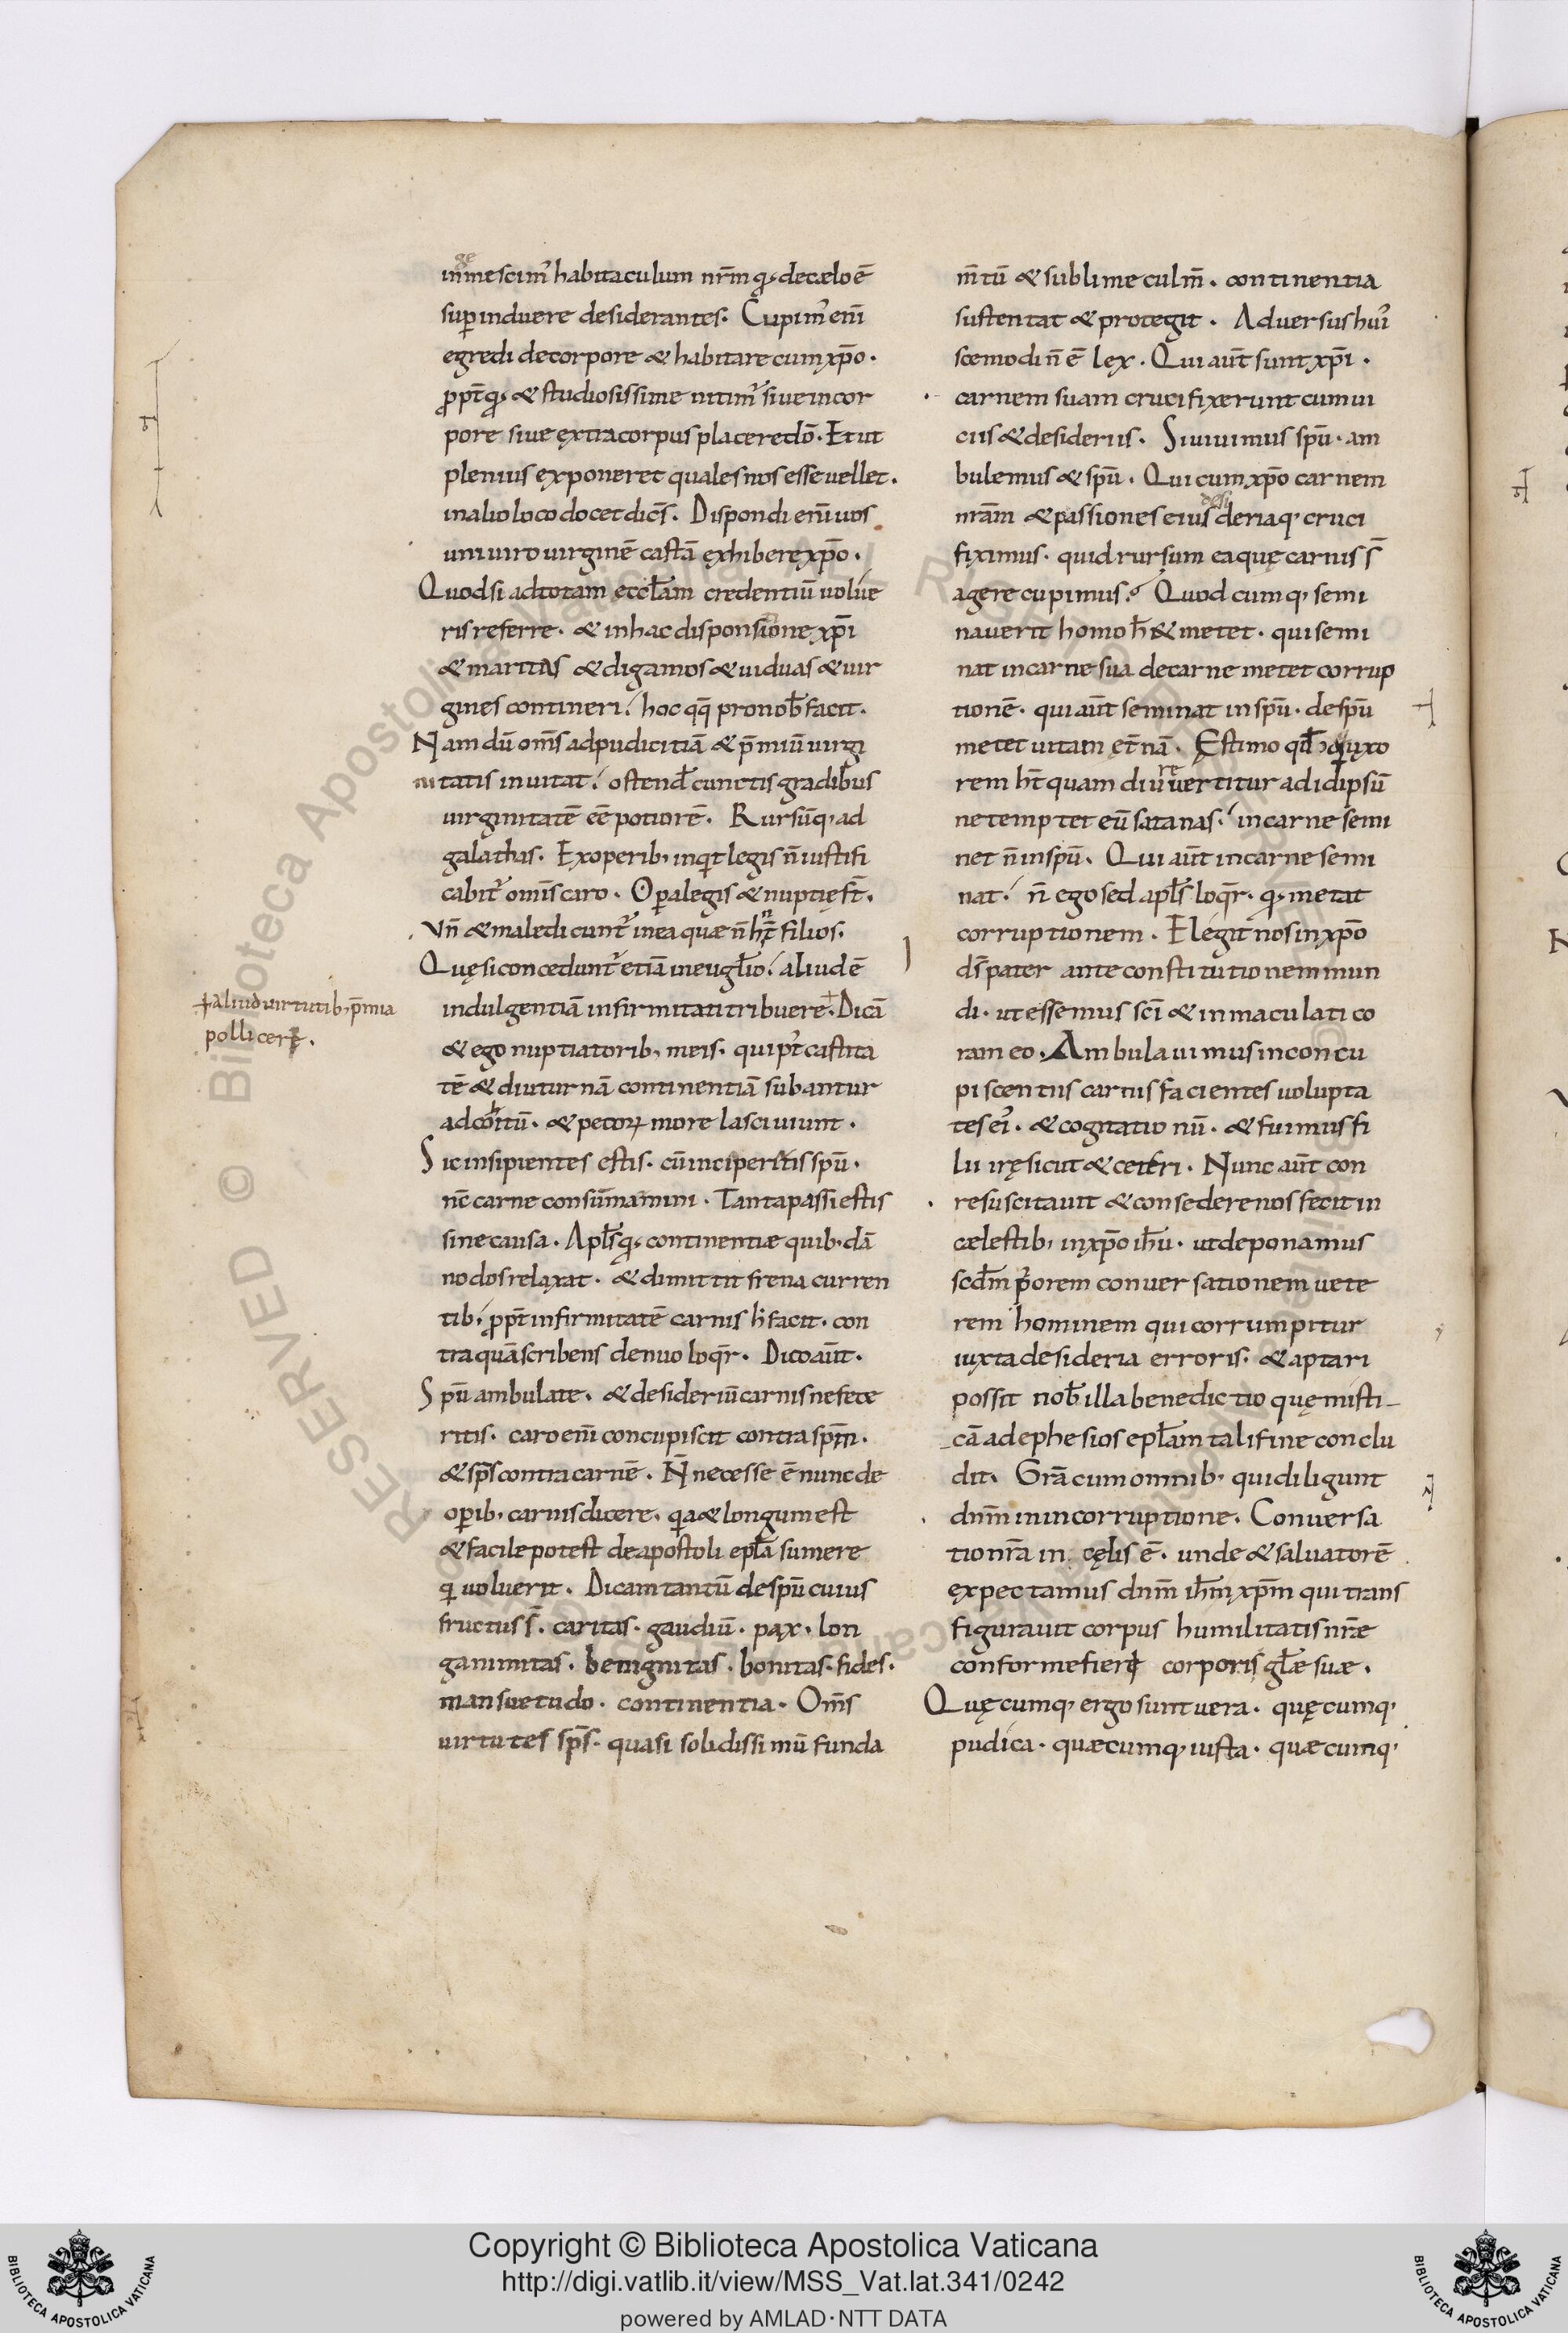 inmescim᾽ habitaculum nr̄m q; decælo ē
ge
sup̱induere desiderantes. Cupim᾽ enī
egredi decorpore & habitare cum xp̄o.
ꝓpt̄q; & studiosissime nitim᾽ siue incor
pore siue extra corpus placere dō. Et ut
plenius exponeret quales nos esse uellet.
in alio loco docet dicēs. Dispondi enī uos
uni uiro uirginē castā exhibere xp̄o.
Quod si ad totam eccl̄am credentiū uolue
ris referre. & in hac disponsione xp̄i
& maritas & digamos & uiduas & uir
gines contineri. hoc qq̄ pro nob̄ facit.
Nam dū om̄s ad pudicitiā & p̄miū uirgi
nitatis inuitat. ostend̄ cunctis gradibus
uirginitatē eē potiorē. Rursūq; ad
galathas. Ex operib; inqt legis n̄ iustifi
cabit᾽ omīs caro. Op̱a legis & nuptię st̄.
Vn̄ & maledicunt᾽ in ea quæ n̄ hn̄t filios.
Quę si concedunt᾽ etiā in eugl̄io. aliud ē
indulgentiā infirmitati tribuere. Dicā
+ aliud uirtutib; p̄mia
pollicer.
& ego nuptiatorib; meis. qui p᾽t castita
tē & diuturnā continentiā subantur
ad cohitū. & petorꝝ more lasciuiunt.
Sic insipientes estis. cū inciperitis spū.
nc̄ carne consūmamini. Tanta passi estis
sine causa. Apl̄s q; continentiæ quib;dā
nodos relaxat. & dimittit frena curren
tib; ꝓpt̄ infirmitatē carnis h᾽ facit. con
tra quā scribens denuo loqr̄. Dico aūt.
Spū ambulate. & desideriū carnis ne fece
ritis. caro enī concupiscit contra spm̄.
& sp̄s contra carnē. N̄ necesse ē nunc de
op̱ib; carnis dicere. qa & longum est
& facile potest de apostoli epl̄a sumere
qi uoluerit. Dicam tantū de spū cuius
fructus s̄. caritas. gaudiū. pax. lon
ganimitas. benignitas. bonitas. fides.
mansuetudo. continentia. Om̄s
uirtutes sp̄s. quasi solidissimū funda
m̄tū & sublime culm̄. continentia
sustentat & protegit. Aduersus hui᾽
scemodi n̄ ē lex. Qui aūt sunt xp̄i.
carnem suam crucifixerunt cum ui
ciis & desideriis. Si uiuimus spū. am
bulemus & spū. Qui cum xp̄o carnem
nr̄am & passiones eius desideriaq; cruci
fiximus. quid rursum ea quę carnis s̄
agere cupimus? Quodcumq; semi
nauerit homo h̄ & metet. qui semi
nat in carne sua de carne metet corrup
tionē. qui aūt seminat in spū. de spū
metet uitam et̄nā. Estimo qd̄ qui uxo
rem ht̄ quamdiu reuertitur ad id ipsū
ne temptet eū satanas. in carne semi
net n̄ in spū. Qui aūt in carne semi
nat. n̄ ego sed apl̄s loqr̄. q; metat
corruptionem. Elegit nos in xp̄o
ds̄ pater ante constitutionem mun
di. ut essemus sc̄i & inmaculati co
ram eo. Ambulauimus in concu
piscentiis carnis facientes uolupta
tes ei᾽. & cogitationū. & fuimus fi
lii irę sicut & ceteri. Nunc aūt con
resuscitauit & consedere nos fecit in
cælestib; in xp̄o ihū. ut deponamus
scdm̄ priorem conuersationem uete
rem hominem qui corrumpitur
iuxta desideria erroris. & aptari
possit nob̄ illa benedictio quę misti
cā ad ephesios epl̄am tali fine conclu
dit. Gr̄a cum omnib; qui diligunt
dnm̄ in incorruptione. Conuersa
tio nr̄a in cęlis ē. unde & saluatorē
expectamus dnm̄ ihm̄ xpm̄ qui trans
figurauit corpus humilitatis nr̄æ
conforme fieri corporis gl̄æ suæ.
Quęcumq; ergo sunt uera. quęcumq;
pudica. quæcumq; iusta. quæcumq;
Copyright © Biblioteca Apostolica Vaticana
http://digi.vatlib.it/view/MSS_Vat.lat.341/0242
powered by AMLAD·NTT DATA
BIBLIOTECA APOSTOLICA VATICANA
BIBLIOTECA APOSTOLICA VATICANA